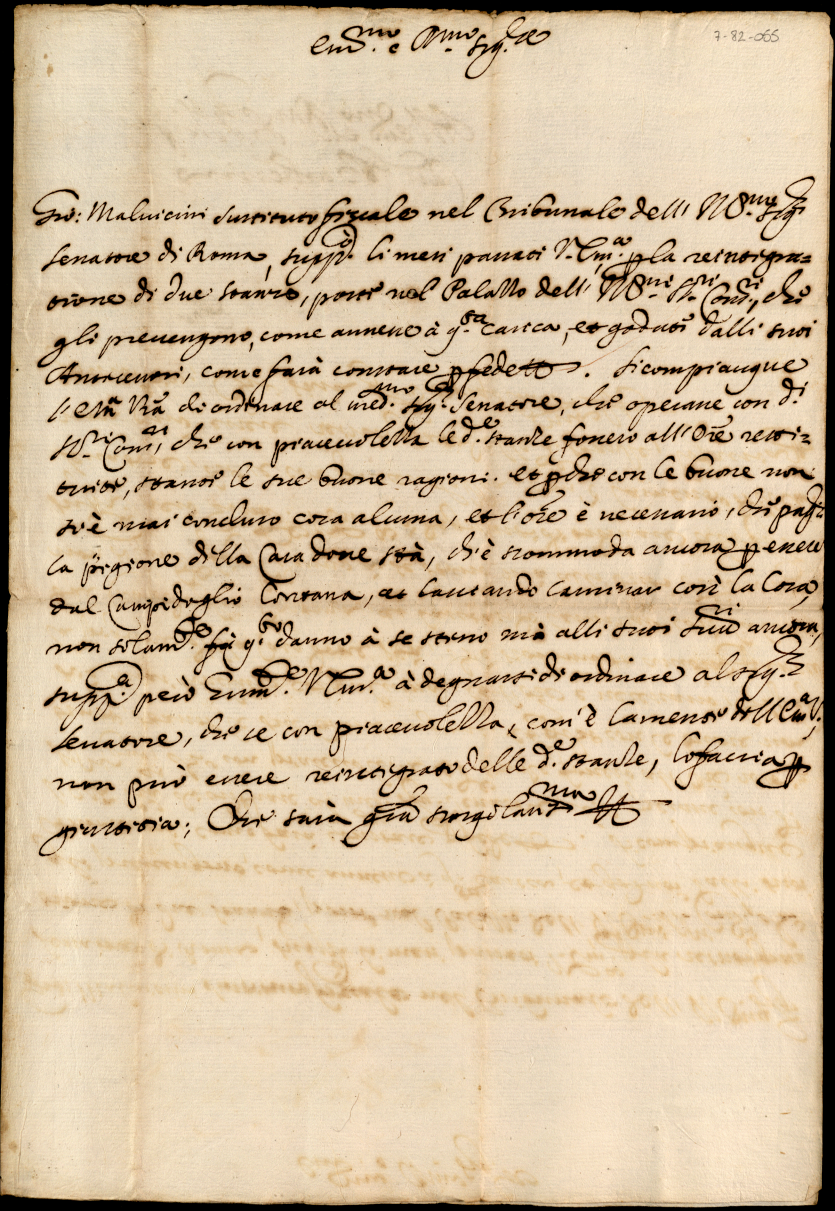 Em.mo e R.mo Sig.re
7-82-066
Gio: Maluicini sustituto fiscale nel Tribunale dell' Ill.mo Sig.r
Senatore di Roma, supp.ò li mesi passati V. Em.a p la reintegra=
tione di due stanze, poste nel Palazzo dell' Ill.mi SS.ri Con.ri, che
gli preuengono, come annesse à q.sta carica, et godute dalli suoi
Antecessori, come farà constare p fede. Si compiacque
l'Em.a V.ra di ordinare al med.mo Sig.r Senatore, che operasse con d.i
SS.ri Con.ri, che con piaceuolezza le d.e stanze fossero all' Ore resti=
tuite, stante le sue buone ragioni. et p che con le buone non
si è mai concluso cosa alcuna, et l'Ore è necessario, che paghi
la pigione della Casa doue stà, ch'è scommoda ancora p essere
dal Campidoglio lontana, et lasciando caminar così la cosa,
non solam.te fà q.sto danno à se stesso mà alli suoi succ.ri ancora,
supp.ca però hum.te V. Em.a à degnarsi di ordinare al Sig.r
Senatore, che se con piaceuolezza, com'è la mente dell' Em.a V.,
non può essere reintegrato delle d.e stanze, lo faccia p
giustitia; Che sarà gra singolariss.ma